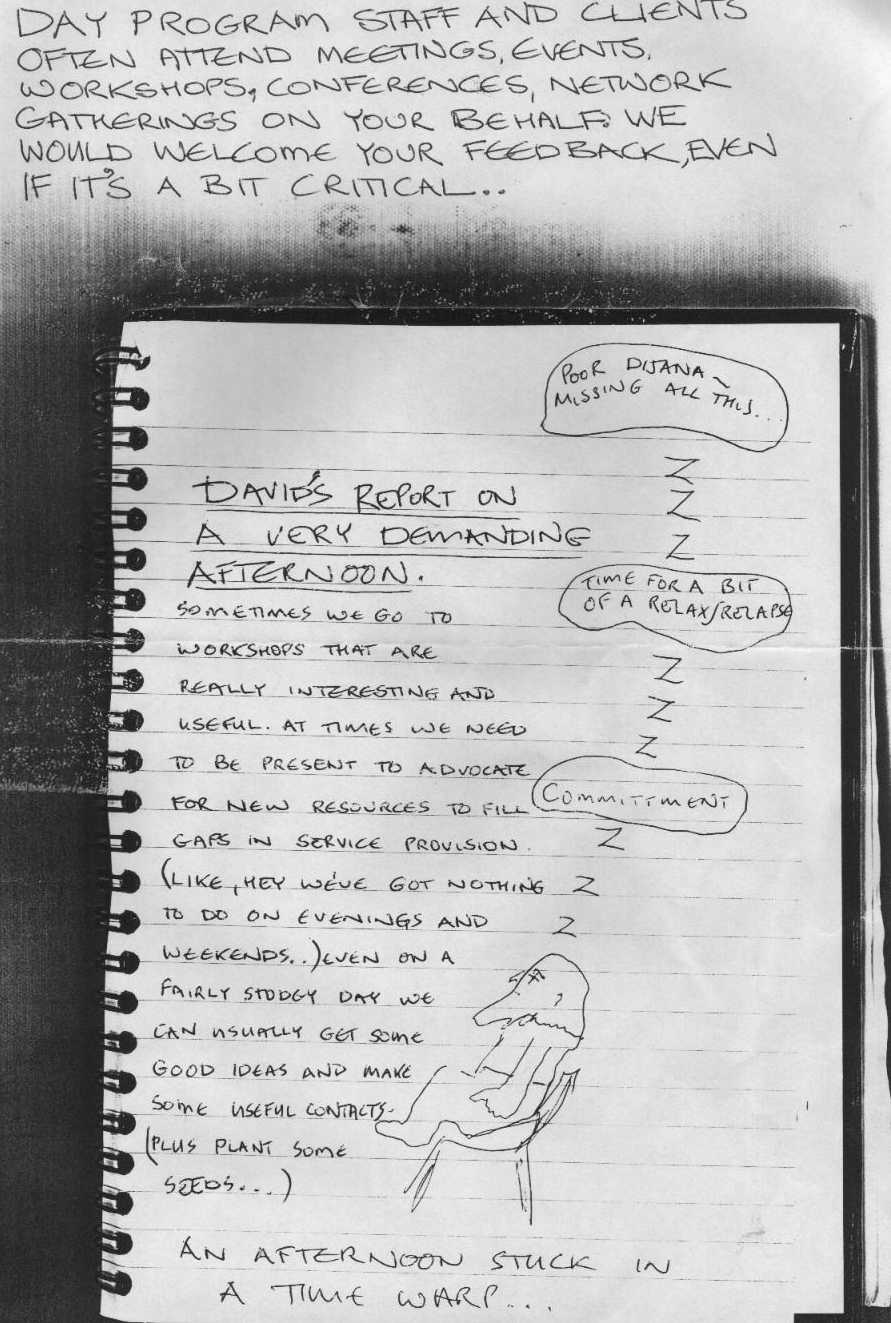 DAY PROGRAM STAFF AND CLIENTS
OFTEN ATTEND MEETINGS, EVENTS,
WORKSHOPS, CONFERENCES, NETWORK
GATHERINGS ON YOUR BEHALF. WE
WOULD WELCOME YOUR FEEDBACK, EVEN
IF IT'S A BIT CRITICAL..
POOR DIJANA ~
MISSING ALL THIS...
Z
Z
Z
DAVID'S REPORT ON
A VERY DEMANDING
AFTERNOON.
TIME FOR A BIT
OF A RELAX/RELAPSE
Z
Z
Z
COMMITTMENT
Z
Z
Z
SOMETIMES WE GO TO
WORKSHOPS THAT ARE
REALLY INTERESTING AND
USEFUL. AT TIMES WE NEED
TO BE PRESENT TO ADVOCATE
FOR NEW RESOURCES TO FILL
GAPS IN SERVICE PROVISION.
(LIKE, HEY WE'VE GOT NOTHING
TO DO ON EVENINGS AND
WEEKENDS..) EVEN ON A
FAIRLY STODGY DAY WE
CAN USUALLY GET SOME
GOOD IDEAS AND MAKE
SOME USEFUL CONTACTS.
(PLUS PLANT SOME
SEEDS...)
AN AFTERNOON STUCK IN
A TIME WARP...